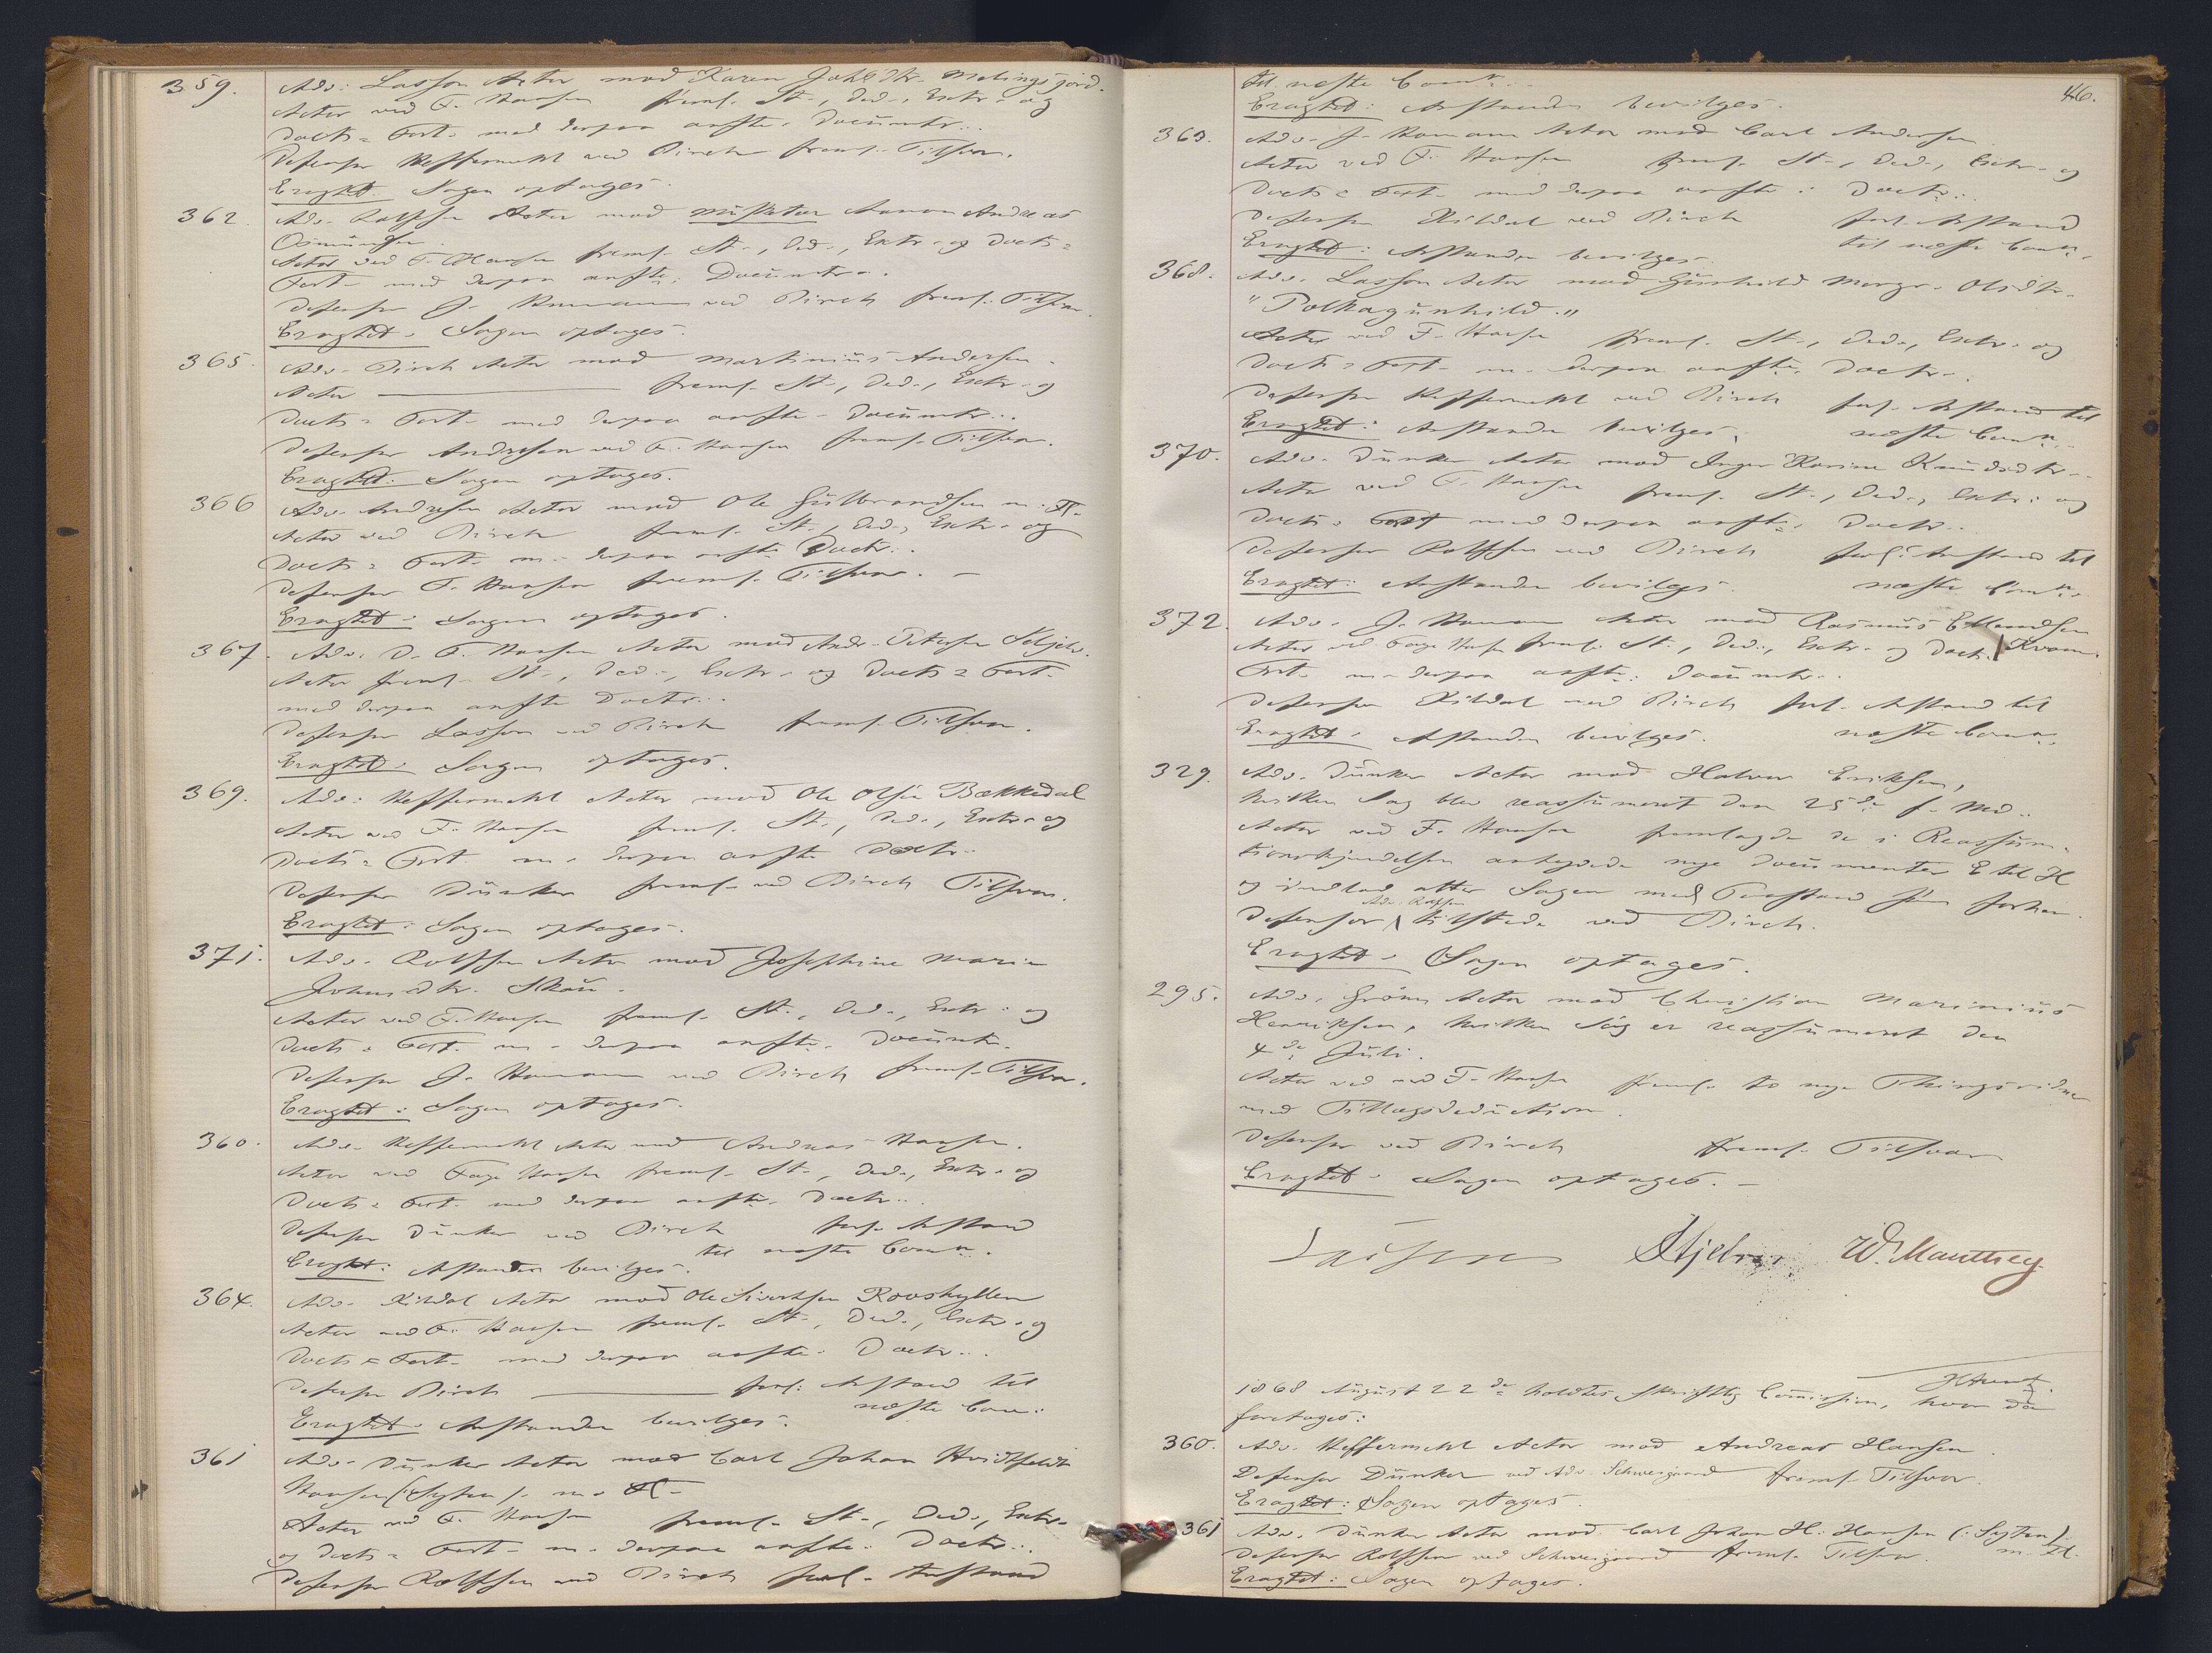 359. Adv: Lasson Actor mod Karen Johsdtr. Melingsjord.
Actor ved F. Hansen freml. St., Ded., Extr. og
Docts = Fort. med derpaa anfte. Documtr..
Defensor Heffermehl ved Birch freml. Tilsvar.
Eragtet. Sagen optages.
362. Adv. Rolffsen Actor mod Mÿsktær Aanon Andreas
Osmundsen.
Actor ved F. Hansen freml. St., Ded., Extr. og Docts =
Fort. med derpaa anfte. Documtr..
Defensor J. Homann ved Birch freml. Tilsvar.
Eragtet. Sagen optages.
365. Adv. Birch Actor mod Martinius Andersen.
Actor freml. St., Ded., Extr. og
Docts = Fort. med derpaa anfte. Documtr..
Defensor Andresen ved F. Hansen freml. Tilsvar.
Eragtet: Sagen optages.
366 Adv. Andresen Actor mod Ole Gulbrandsen m: Fl.
Actor ved Birch freml. St., Ded., Extr. og
Docts = Fort. m. derpaa anfte Doctr..
Defensor F. Hansen freml. Tilsvar. –
Eragtet. Sagen optages.
367. Adv. D. F. Hansen Actor mod Andr. Petersen
Actor freml. St., Ded., Extr. og Docts = Fort.
med derpaa anfte Doctr..
Defensor Lasson ved Birch freml. Tilsvar.
Eragtet: Sagen optages.
369. Adv: Heffermehl Actor mod Ole Olsen Bækkedal
Actor ved F. Hansen freml. St., Ded., Extr. og
Docts = Fort. m. derpaa anfte Doctr.
Defensor Dunker freml. ved Birch Tilsvar.
Eragtet: Sagen optages.
371. Adv. Rolffsen Actor mod Josephine Marie
Johnsdtr. Skau.
Actor ved F. Hansen freml. St., Ded., Extr. og
Docts = Fort. m. derpaa anfte. Documtr.
Defensor J. Homann ved Birch freml. Tilsvar.
Eragtet: Sagen optages.
360. Adv. Heffermehl Actor mod Andreas Hansen.
Actor ved Faye Hansen freml. St., Ded., Extr. og
Docts = Fort. med derpaa anfte. Doctr..
Defensor Dunker ved Birch forl. Anstand
til næste Comn.
Eragtet: Anstanden bevilges.
364. Adv. Kildal Actor mod Ole Sivertsen Rovshyllen
Actor ved F. Hansen freml. St., Ded., Extr. og
Docts = Fort. med derpaa anfte. Doctr..
Defensor Birch forl: Anstand til
næste Com:
Eragtet: Anstanden bevilges.
361 Adv. Dunker Actor mod Carl Johan Hvidtfeldt
Hansen (Sytten). m. Fl.
Actor ved F. Hansen freml. St., Ded., Extr.
og Docts = Fort. m. derpaa anfte. Doctr..
Defensor Rolffsen ved Birch forl. Anstand
46.
til næste Comn..
Eragtet: Anstanden bevilges.
363. Adv. J. Homann Actor mod Carl Andersen
Actor ved F. Hansen freml. St., Ded., Extr. og
Docts = Fort. med derpaa anfte: Doctr..
Defensor Kildal ved Birch forl. Anstand
til næste Comn.
Eragtet: Anstanden bevilges.
368. Adv. Lasson Actor mod Gunhild Margr. Olsdtr.
"Polkagunhild."
Actor ved F. Hansen freml. St., Ded., Extr. og
Docts = Fort. m. derpaa anfte. Doctr..
Defensor Heffermehl ved Birch forl. Anstand til
næste Comn.
Eragtet: Anstanden bevilges.
370. Adv. Dunker Actor mod Inger Karine Knudsdtr.
Actor ved F. Hansen freml. St., Ded., Extr: og
Docts = Fort med derpaa anfte. Doctr..
Defensor Rolffsen ved Birch forl: Anstand til
næste Comn.
Eragtet: Anstanden bevilges.
372. Adv. J. Homann Actor mod Rasmus Ellendsen
Kvam.
Actor ved Faye Hansen freml: St., Ded., Extr. og Docts
Fort. m. derpaa anfte: Documtr..
Defensor Kildal ved Birch forl. Anstand til
næste Comn.
Eragtet: Anstanden bevilges.
329. Adv. Dunker Actor mod Halvor Eriksen,
hvilken Sag blev reassumeret den 25de f. Md..
Actor ved F. Hansen fremlagde de i Reassum-
tionskjendelsen anhegede nye Documenter E til H
og indlod atter Sagen med Paastand som forhen.
Adv. Rolffsen
Defensor tilstede ved Birch.
Eragtet. Sagen optages.
295. Adv. Grönn Actor mod Christian Marinius
Henriksen, hvilken Sag er reassumeret den
4de Juli.
Actor ved ved F. Hansen freml. to nye Thingsvidner
med Tillægsdeduction.
Defensor ved Birch freml. Tilsvar
Eragtet. Sagen optages. –
Lasson Stjelm W. Manthey
1868 August 22de holdtes skriftlig Commission, hvor da
foretoges:
360. Adv. Heffermehl Actor mod Andreas Hansen.
Defensor Dunker ved Adv. Schweigaard freml. Tilsvar.
Eragtet: Sagen optages.
361 Adv. Dunker Actor mod Carl Johan H. Hansen (: Sytten).
m. Fl.
Defensor Rolffsen ved Schweigaard freml. Tilsvar.
Eragtet: Sagen optages.